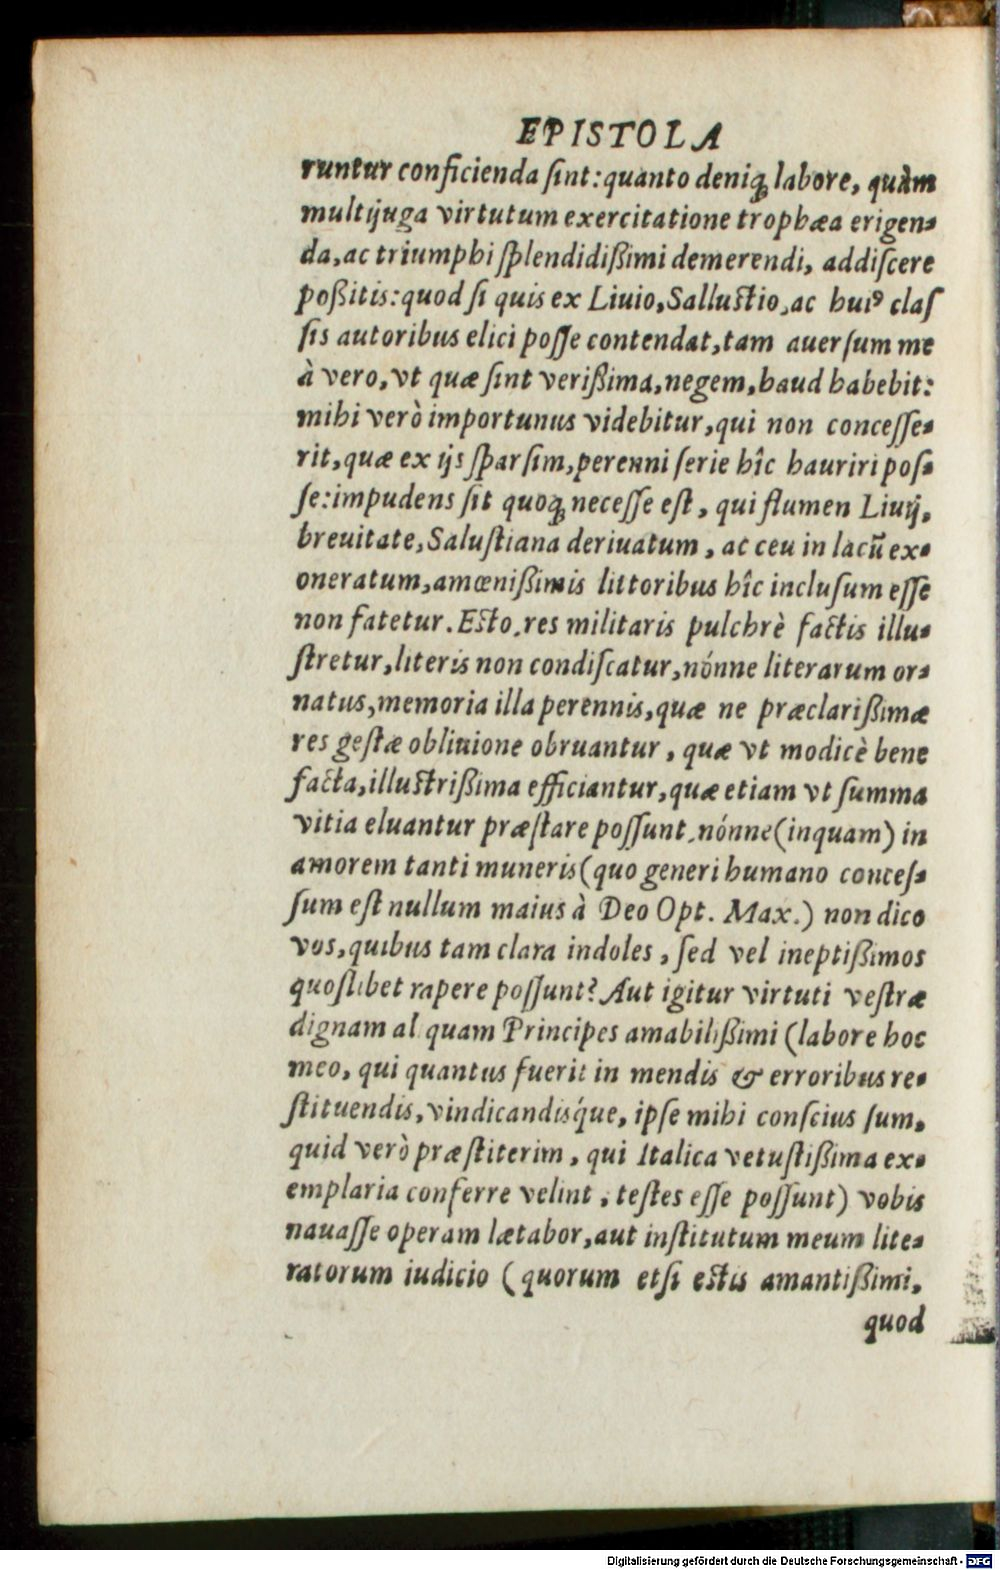 EPISTOLA
runtur conficienda ſint: quanto deniq́; labore, quàm
multijuga virtutum exercitatione trophæa erigen-
da, ac triumphi ſplendidißimi demerendi, addiſcere
poßitis: quod ſi quis ex Liuio, Salluſtio, ac huiꝰ claſ
ſis autoribus elici poſſe contendat, tam auerſum me
à vero, vt quæ ſint verißima, negem, haud habebit:
mihi verò importunus videbitur, qui non conceſſe-
rit, quæ ex ijs ſparſim, perenni ſerie hîc hauriri poſ-
ſe: impudens ſit quoq́; neceſſe eſt, qui flumen Liuij,
breuitate, Saluſtiana deriuatum, ac ceu in lacũ ex-
oneratum, amœnißimis littoribus hîc incluſum eſſe
non fatetur. Eſto, res militaris pulchrè factis illu-
ſtretur, literis non condiſcatur, nónne literarum or-
natus, memoria illa perennis, quæ ne præclarißimæ
res geſtæ obliuione obruantur, quæ vt modicè bene
facta, illuſtrißima efficiantur, quæ etiam vt ſumma
vitia eluantur præſtare poſſunt, nónne (inquam) in
amorem tanti muneris (quo generi humano conceſ-
ſum eſt nullum maius à Deo Opt. Max.) non dico
vos, quibus tam clara indoles, ſed vel ineptißimos
quoſlibet rapere poſſunt? Aut igitur virtuti veſtræ
dignam al quam Principes amabilißimi (labore hoc
meo, qui quantus fuerit in mendis & erroribus re-
ſtituendis, vindicandisq́ue, ipſe mihi conſcius ſum,
quid verò præſtiterim, qui Italica vetuſtißima ex-
emplaria conferre velint, teſtes eſſe poſſunt) vobis
nauaſſe operam lætabor, aut inſtitutum meum lite-
ratorum iudicio (quorum etſi eſtis amantißimi,
quod
Digitalisierung gefördert durch die Deutsche Forschungsgemeinschaft - DFG